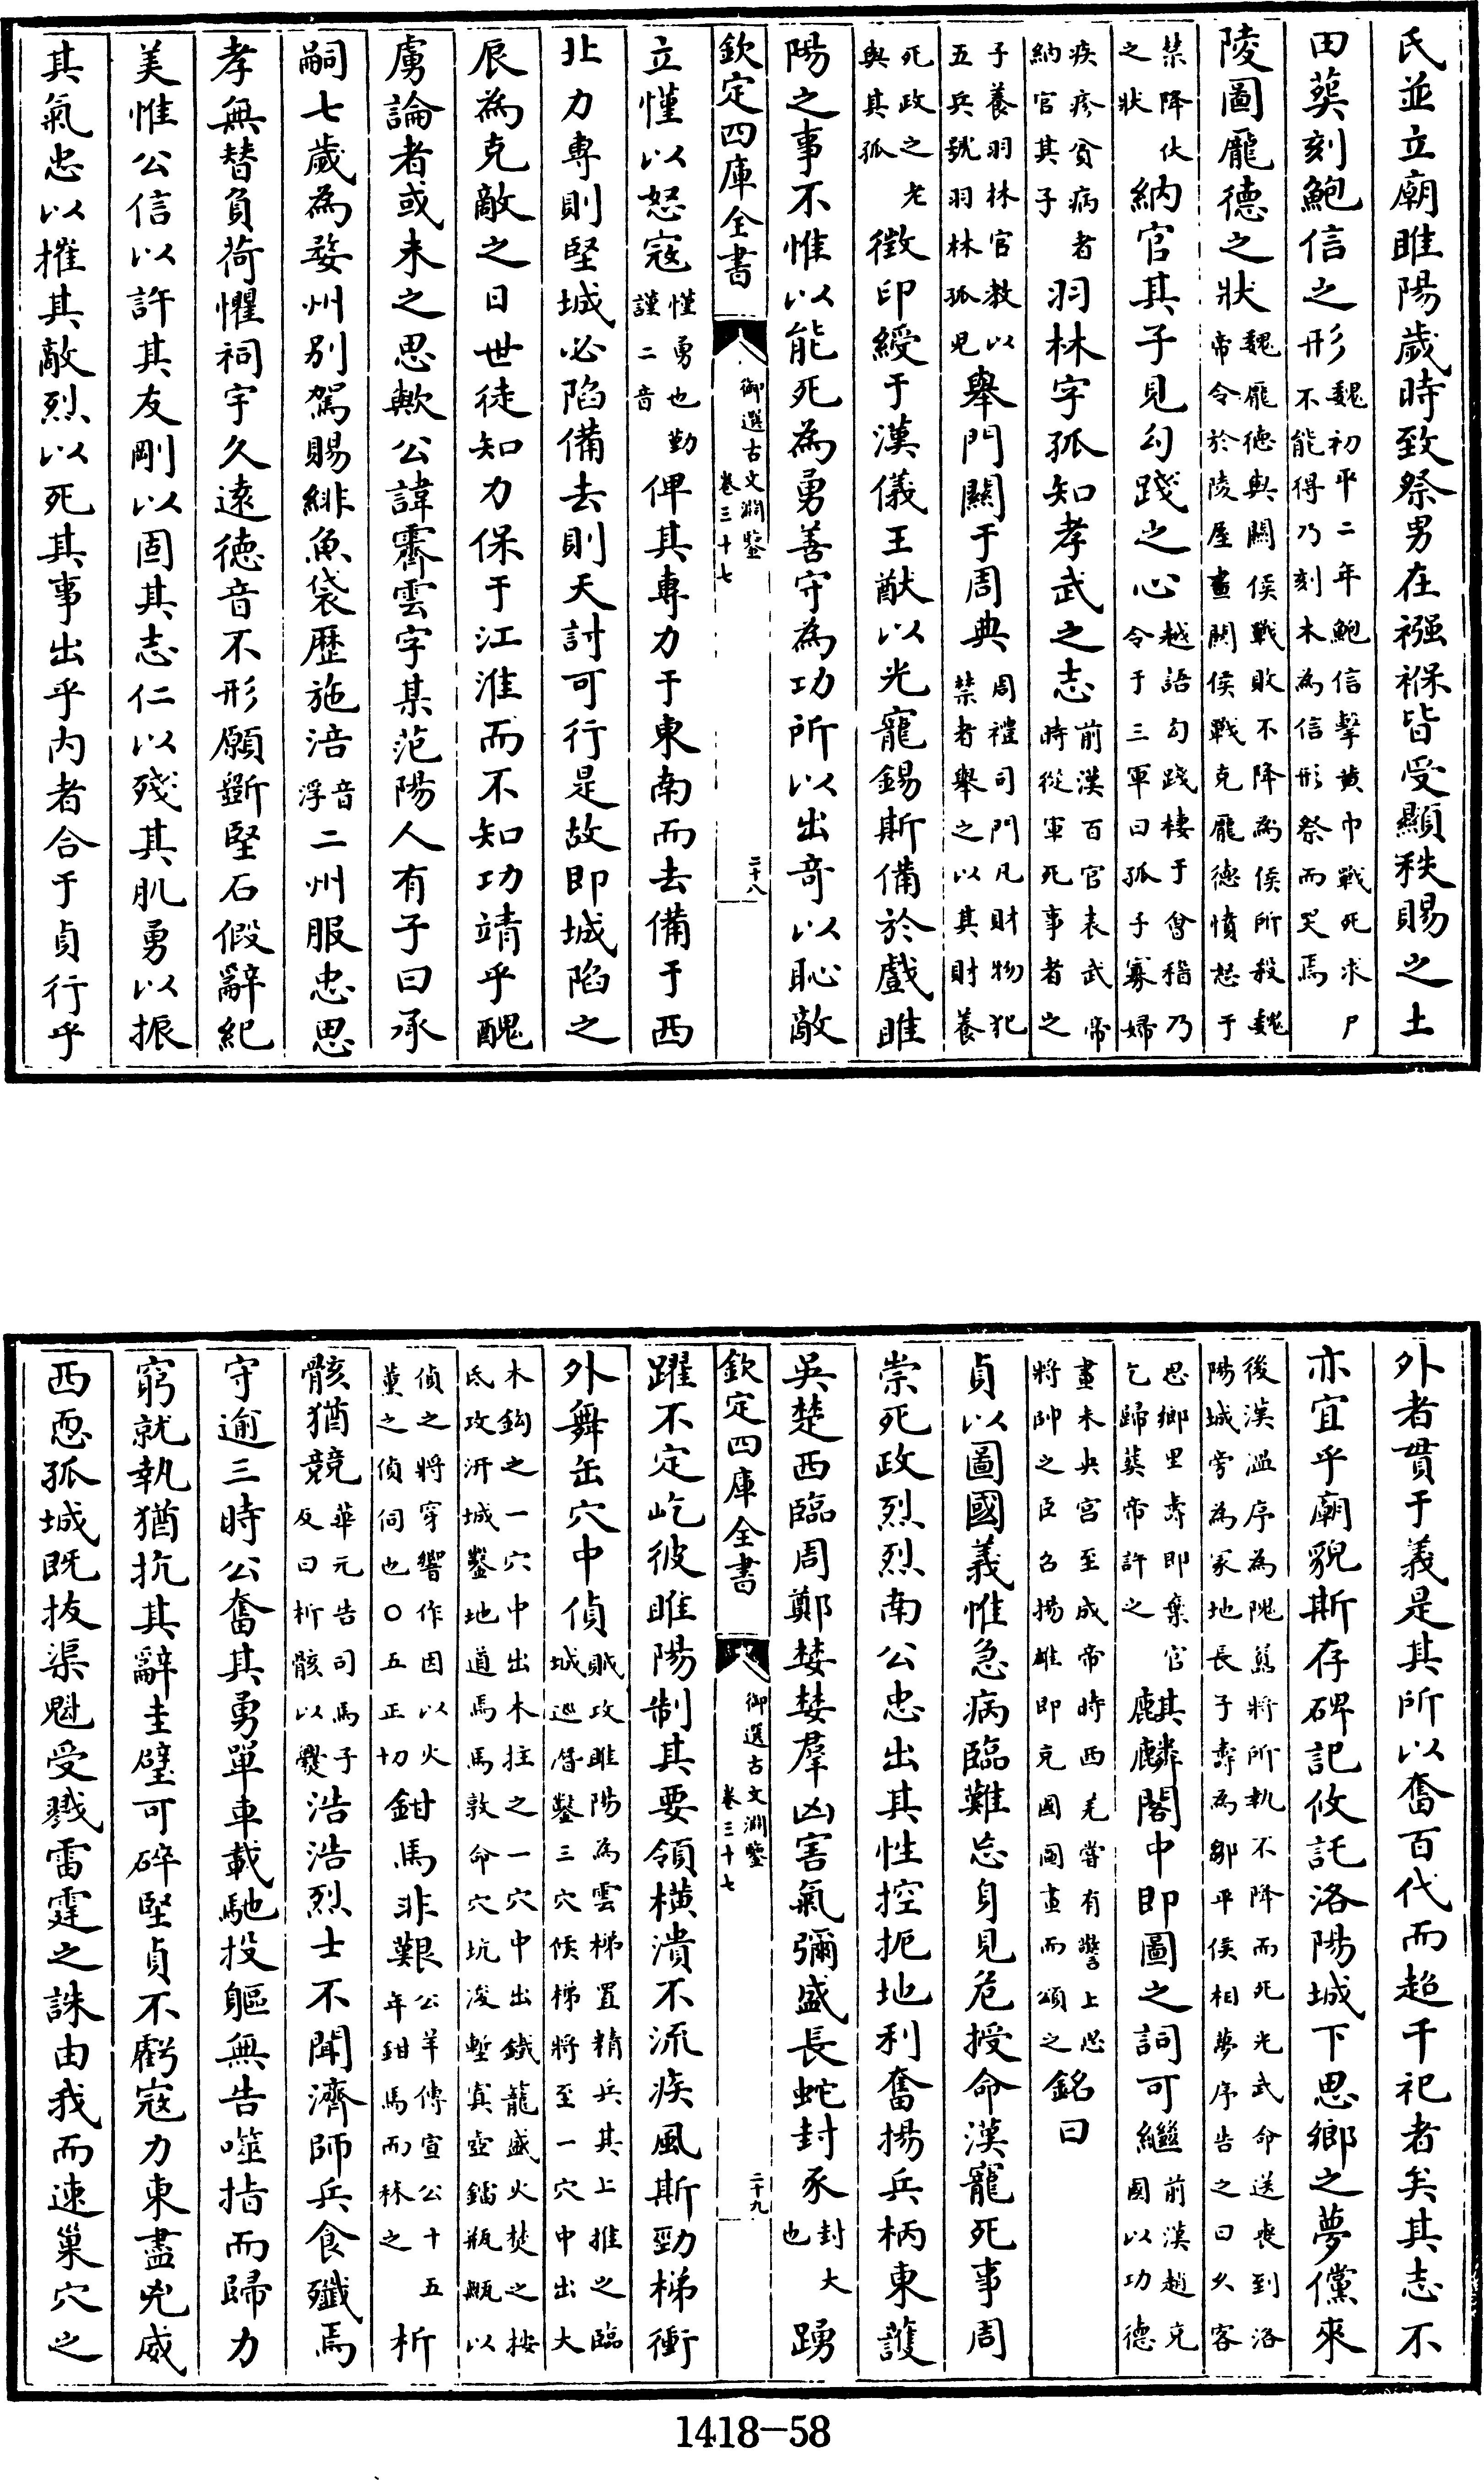 氏並立廟睢陽歲時致祭男在襁褓皆受顯秩賜之土
田葬刻鮑信之形魏初平二年鮑信擊黃巾戰死求尸不能得乃刻木為信形祭而哭焉
陵圖龎德之狀魏龎德與關侯戰敗不降為侯所殺魏帝令於陵屋畫關侯戰克龎德憤怒于
禁降伏之狀納官其子見勾踐之心越語勾踐棲于會稽乃令于三軍曰孤子寡婦
疾疹貧病者納官其子羽林字孤知孝武之志前漢百官表武帝時從軍死事者之
子養羽林官教以五兵號羽林孤兒舉門關于周典周禮司門凡財物犯禁者舉之以其財養
死政之老與其孤徵印綬于漢儀王猷以光寵錫斯備於戲睢
陽之事不惟以能死為勇善守為功所以出奇以恥敵
欽定四庫全書 御選古文淵鑒 卷三十七 二十八
立慬以怒寇慬勇也勤謹二音俾其專力于東南而去備于西
北力專則堅城必陷備去則天討可行是故即城陷之
辰為克敵之日世徒知力保于江淮而不知功靖乎醜
虜論者或未之思歟公諱霽雲字某范陽人有子曰承
嗣七歲為婺州別駕賜緋魚袋歷施涪音浮二州服忠思
孝無替負荷懼祠宇久遠德音不形願斲堅石假辭紀
美惟公信以許其友剛以固其志仁以殘其肌勇以振
其氣忠以摧其敵烈以死其事出乎內者合于貞行乎
外者貫于義是其所以奮百代而超千祀者矣其志不
亦宜乎廟貌斯存碑記攸託洛陽城下思鄉之夢儻來
後漢溫序為隗囂將所執不降而死光武命送喪到洛陽城旁為冢地長子壽為鄒平侯相夢序告之曰久客
思鄉里壽即棄官乞歸葬帝許之麒麟閣中即圖之詞可繼前漢趙充國以功德
畫未央宮至成帝時西羌嘗有警上思將帥之臣召揚雄即充國圖畫而頌之銘曰
貞以圖國義惟急病臨難忘身見危授命漢寵死事周
崇死政烈烈南公忠出其性控扼地利奮揚兵柄東護
吳楚西臨周鄭婪婪羣凶害氣彌盛長蛇封豕封大也踴
欽定四庫全書 御選古文淵鑒 卷三十七 二十九
躍不定屹彼睢陽制其要領橫潰不流疾風斯勁梯衝
外舞缶穴中偵賊攻睢陽為雲梯置精兵其上推之臨城巡潛鑿三穴候梯將至一穴中出大
木鉤之一穴中出木拄之一穴中出鐵籠盛火焚之按氏攻汧城鑿地道馬馬敦命穴坑浚塹寘壺鐳瓶甒以
偵之將穿響作因以火薰之偵伺也○五正切鉗馬非艱公羊傳宣公十五年鉗馬而秣之析
骸猶競華元告司馬子反曰析骸以㸑浩浩烈士不聞濟師兵食殲焉
守逾三時公奮其勇單車載馳投軀無告噬指而歸力
窮就執猶抗其辭圭璧可碎堅貞不虧寇力東盡兇威
西恧孤城既拔渠魁受戮雷霆之誅由我而速巢穴之
1418-58